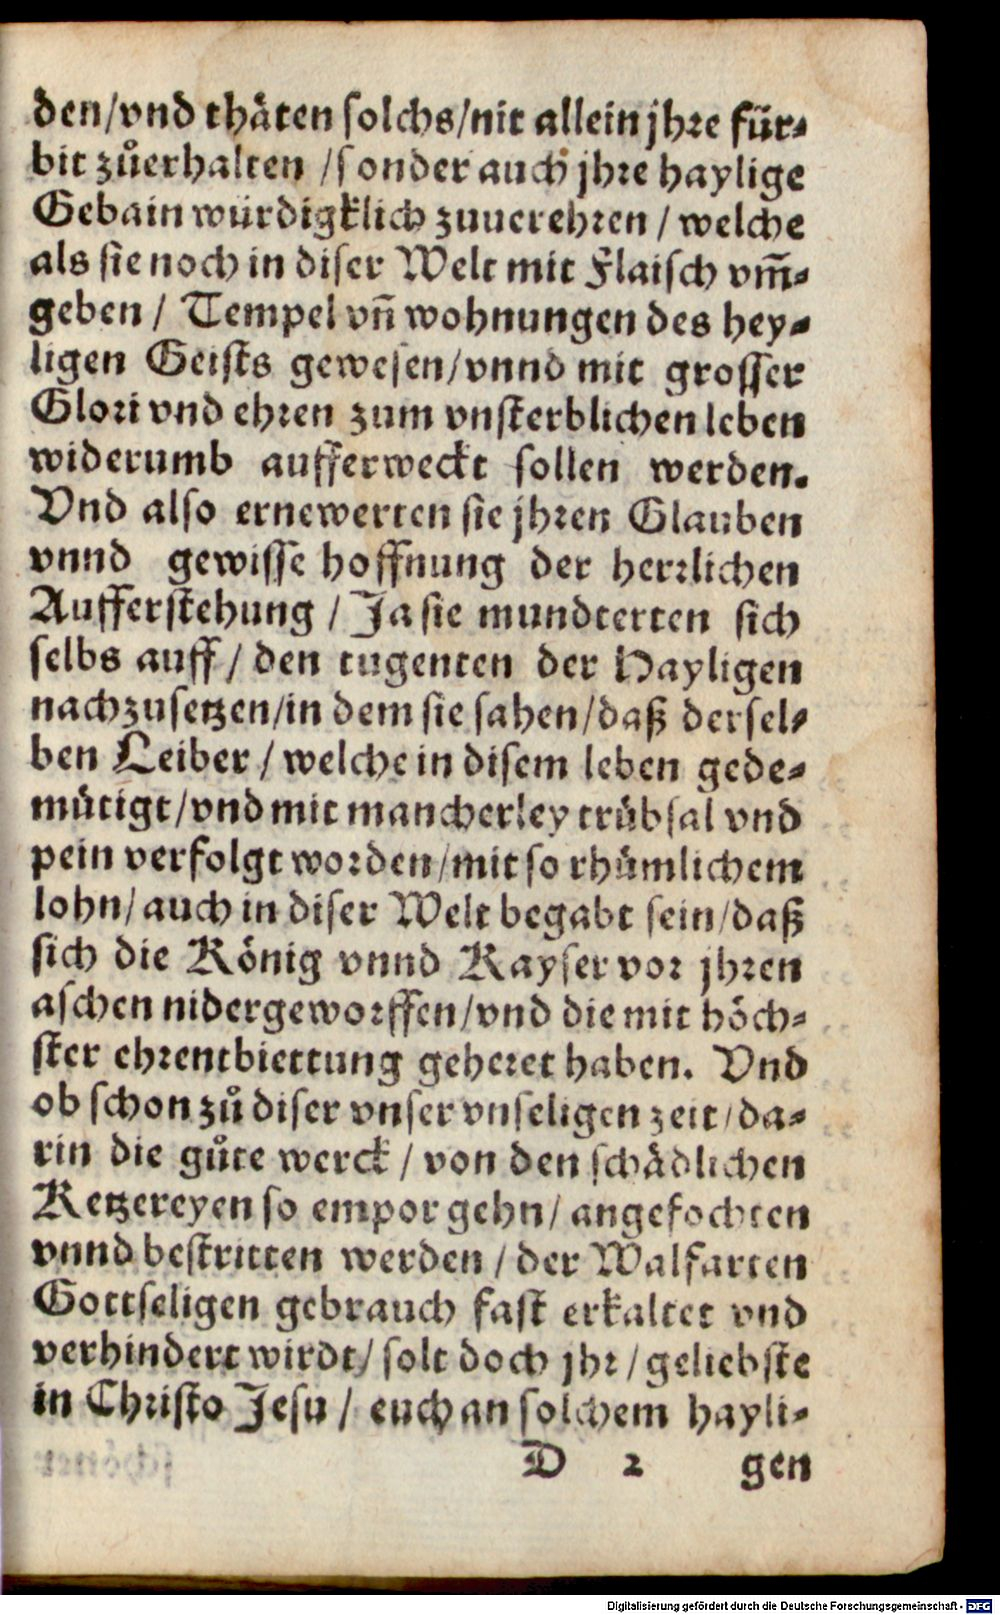 den/vnd thäten solchs/nit allein jhre für-
bit zůerhalten /sonder auch jhre haylige
Gebain würdigklich zuuerehren / welche
als sie noch in diser Welt mit Flaisch vm̃-
geben / Tempel vñ wohnungen des hey-
ligen Geists gewesen/vnnd mit grosser
Glori vnd ehren zum vnsterblichen leben
widerumb aufferweckt sollen werden.
Vnd also ernewerten sie jhren Glauben
vnnd gewisse hoffnung der herrlichen
Aufferstehung / Ja sie mundterten sich
selbs auff / den tugenten der Hayligen
nachzusetzen/in dem sie sahen/daß dersel-
ben Leiber / welche in disem leben gede-
mütigt/vnd mit mancherley trübsal vnd
pein verfolgt worden/mit so rhümlichem
lohn/auch in diser Welt begabt sein/daß
sich die König vnnd Kayser vor jhren
aschen nidergeworffen/vnd die mit höch-
ster ehrentbiettung geheret haben. Vnd
ob schon zů diser vnser vnseligen zeit/da-
rin die gůte werck / von den schädlichen
Ketzereyen so empor gehn/ angefochten
vnnd bestritten werden / der Walfarten
Gottseligen gebrauch fast erkaltet vnd
verhindert wirdt/ solt doch jhr / geliebste
in Christo Jesu / euch an solchem hayli-
D 2 gen
Digitalisierung gefördert durch die Deutsche Forschungsgemeinschaft - DFG